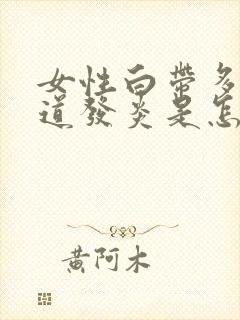 女性白帶多
道發炎是怎
黃阿木